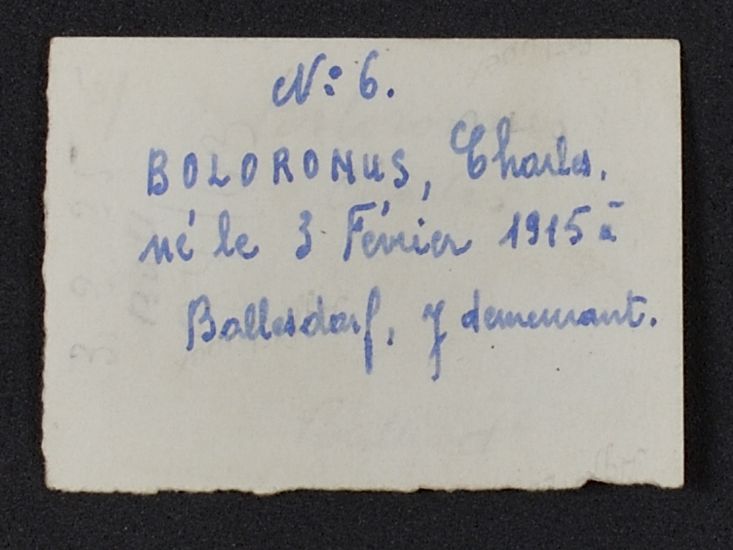 N: 6.
BOLORONUS, Charles,
né le 3 Février 1915 à
Ballesdorf, y demeurant.